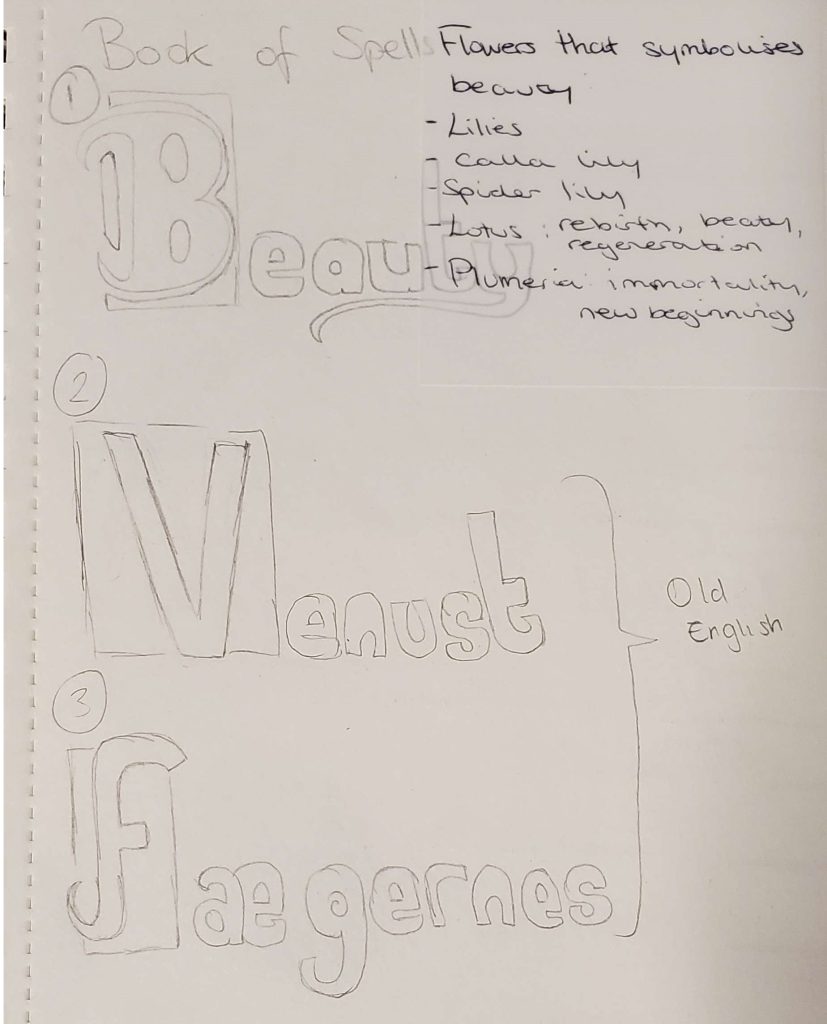 Book of Spells
Flowers that symbolises
beauty
- Lilies
- Calla lily
- Spider lily
- Lotus : rebirth, beaty,
regeneration
- Plumeria: immortality,
new beginnings
1
Beauty
2
Venust
Old
English
3
Fægernes